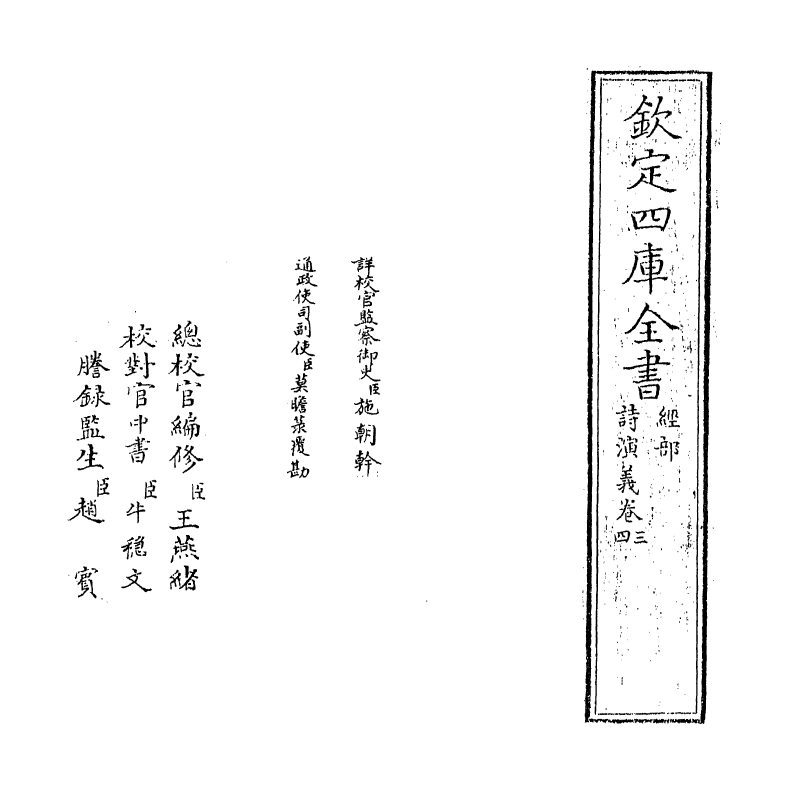 欽定四庫全書
經部
詩演義卷三四
詳校官監察御史臣施朝幹
通政使司副使臣莫瞻菉覆勘
總校官編修臣王燕緒
校對官中書臣牛稔文
謄錄監生臣趙賓